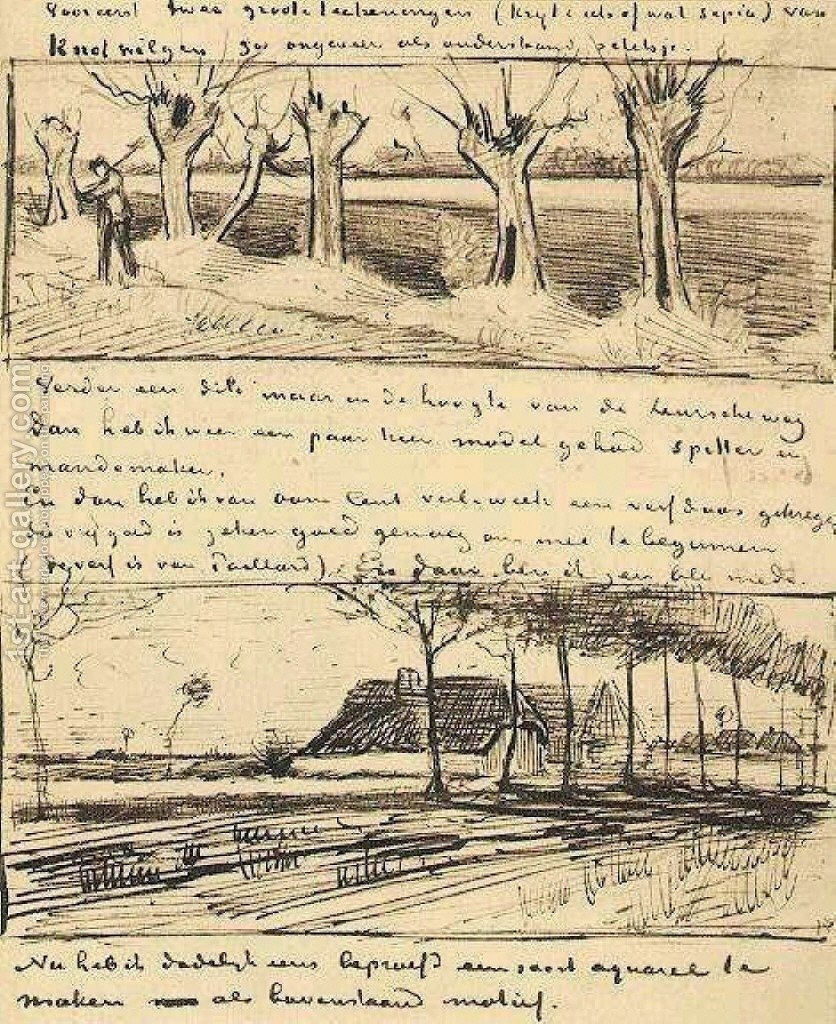 Vooreerst twee groote teekeningen (krijt & iets of wat sepia) van
Knotwilgen zoo ongeveer als onderstaand schetsje.
Verder een dito maar in de hoogte van de Leurscheweg
Dan heb ik weer een paar keer model gehad spitter en
mandemaker.
En dan heb ik van oom Cent verl. week een verfdoos gekregen
die vrij goed is zeker goed genoeg om mee te beginnen
(de verf is van Paillard). En daar ben ik zeer blij mede.
Nu heb ik dadelijk eens beproefd een soort aquarel te
maken als bovenstaand motief.
1st-art-gallery.com